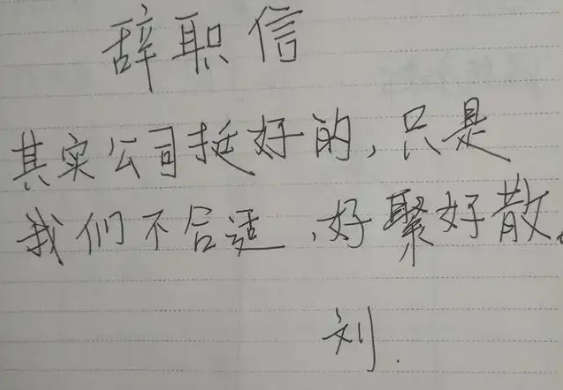 辞职信
其实公司挺好的,只是
我们不合适,好聚好散。
刘.